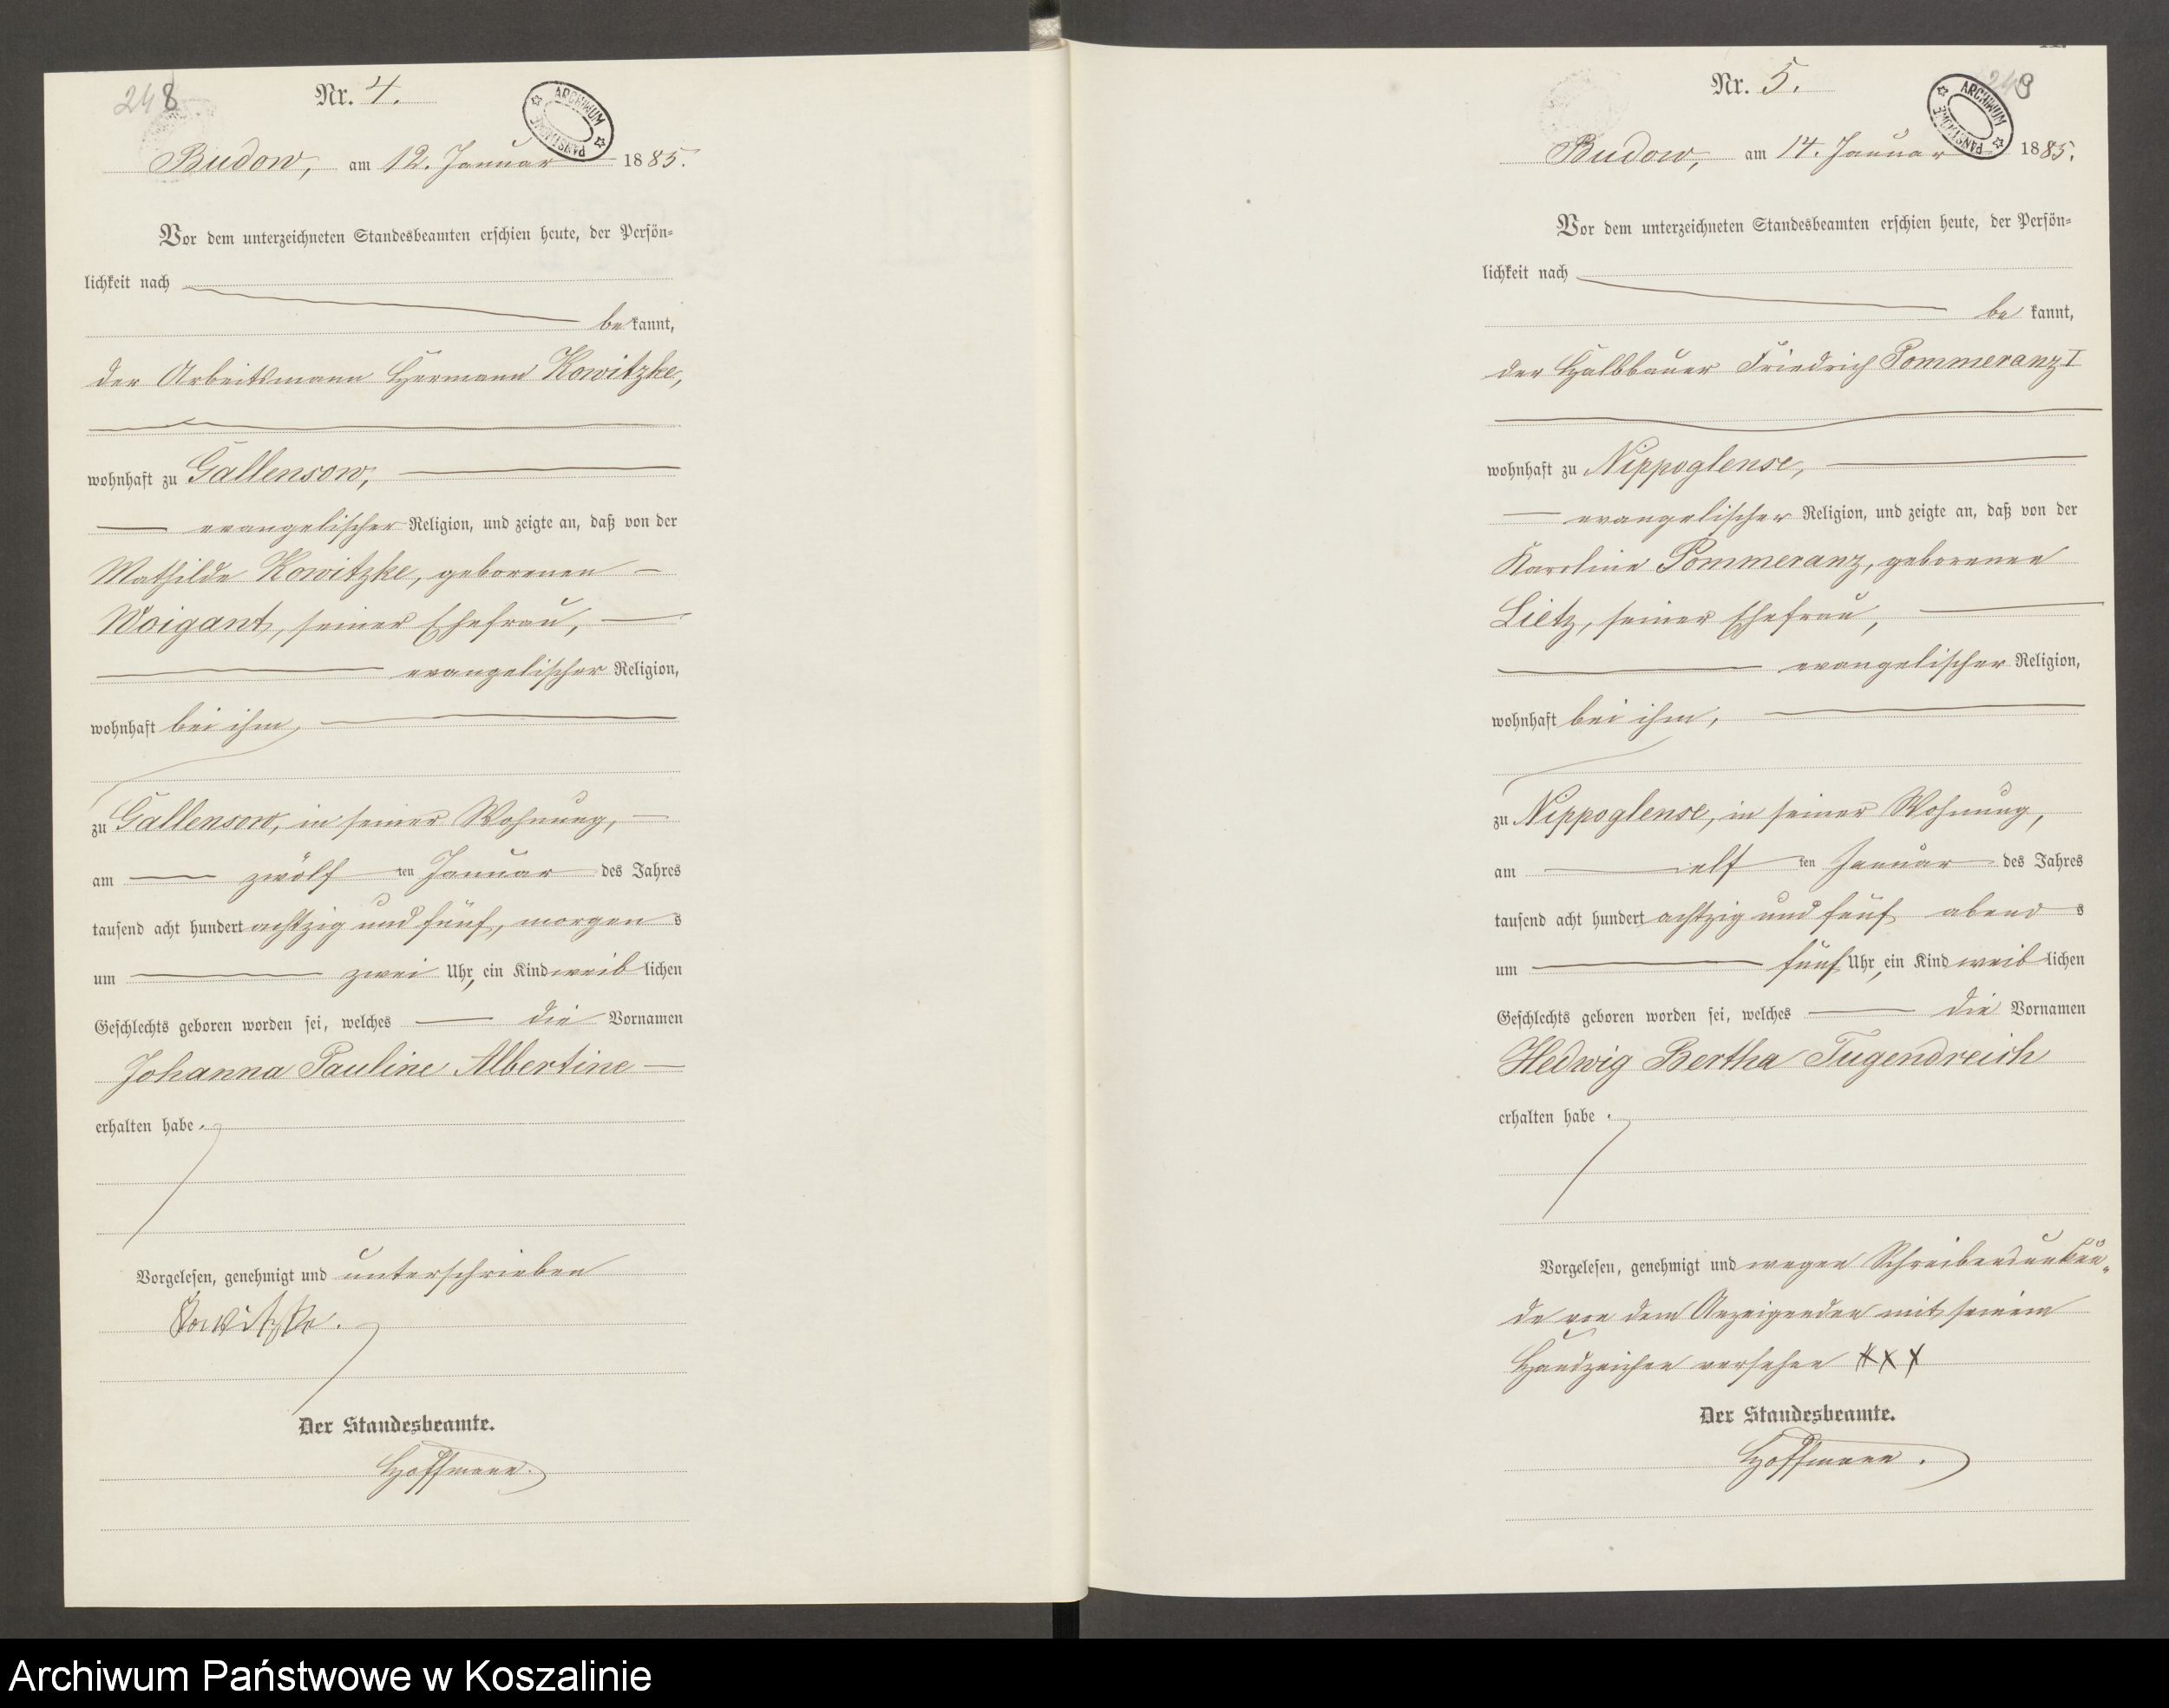 248
Nr. 4.
ARCHIWUM PAŃSTWOWE
Budow, am 12. Januar 1885.
Vor dem unterzeichneten Standesbeamten erschien heute, der Persön-
lichkeit nach
bekannt,
der Arbeitsmann Hermann Kowitzke,
wohnhaft zu Gallensow,
evangelischer Religion, und zeigte an, daß von der
Mathilde Kowitzke, geborenen
Woigant, seiner Ehefrau,
evangelischer Religion,
wohnhaft bei ihm,
zu Gallensow, in seiner Wohnung,
am zwölf ten Januar des Jahres
tausend acht hundert achtzig und fünf, morgens
um zwei Uhr, ein Kind weiblichen
Geschlechts geboren worden sei, welches die Vornamen
Johanna Pauline Albertine
erhalten habe.
Vorgelesen, genehmigt und unterschrieben
Kowitzke.
Der Standesbeamte.
Hoffmann.
249
Nr. 5.
ARCHIWUM PAŃSTWOWE
Budow, am 14. Januar 1885.
Vor dem unterzeichneten Standesbeamten erschien heute, der Persön-
lichkeit nach
bekannt,
der Halbbauer Friedrich Pommeranz I
wohnhaft zu Nippoglense,
evangelischer Religion, und zeigte an, daß von der
Karoline Pommeranz, geborenen
Lietz, seiner Ehefrau,
evangelischer Religion,
wohnhaft bei ihm,
zu Nippoglense, in seiner Wohnung,
am elf ten Januar des Jahres
tausend acht hundert achtzig und fünf abends
um fünf Uhr, ein Kind weiblichen
Geschlechts geboren worden sei, welches die Vornamen
Hedwig Bertha Tugendreich
erhalten habe.
Vorgelesen, genehmigt und wegen Schreibensunkun-
de von dem Anzeigenden mit seinem
Handzeichen versehen XXX
Der Standesbeamte.
Hoffmann.
Archiwum Państwowe w Koszalinie